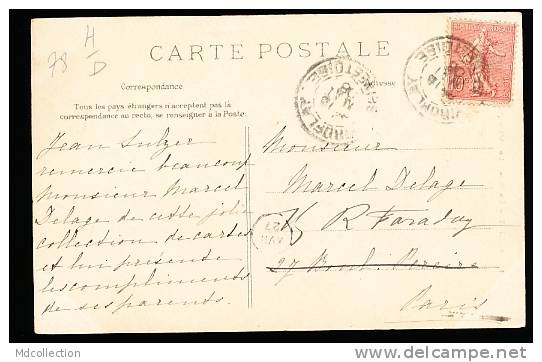 78 H/D
CARTE POSTALE
Correspondance
Adresse
Tous les pays étrangers n'acceptent pas la
correspondance au recto, se renseigner à la Poste
Jean Sulzer
remercie beaucoup
monsieur Marcel
Delage de cette jolie
collection de cartes
et lui présente
les compliments
de ses parents.
Monsieur
Marcel Delage
R Faraday
27 Boul. Pereire
Paris
VIROFLAY
SEINE-ET-OISE
VIROFLAY
AVR
27
Mdcollection
www.delcampe.net